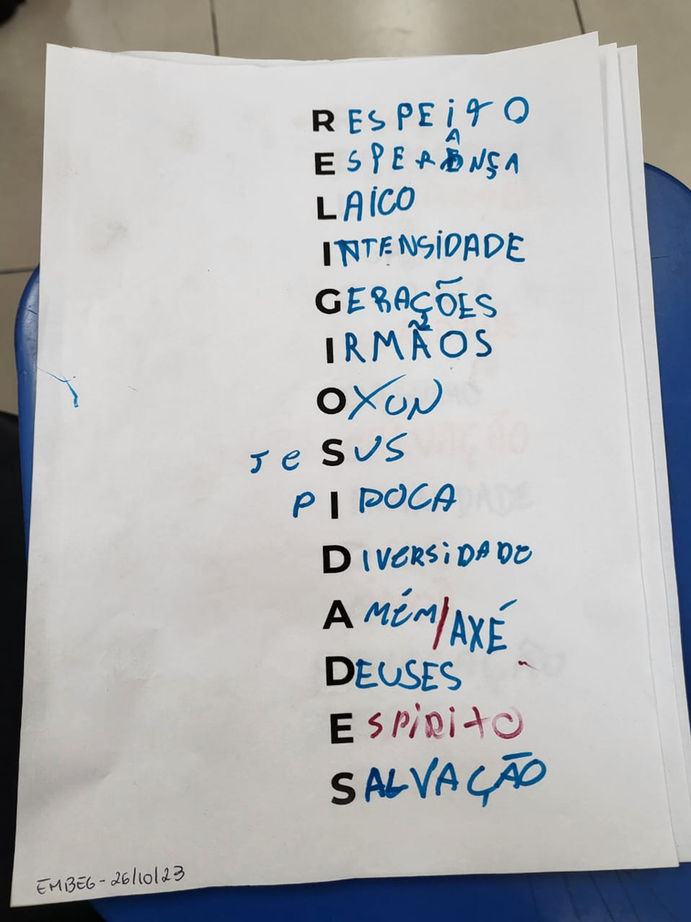 RESPEITO
ESPERANÇA
LAICO
INTENSIDADE
GERAÇÕES
IRMÃOS
OXUN
JeSUS
PIPOCA
DIVERSIDADE
AMÉM/AXÉ
DEUSES
ESPIRITO
SALVAÇÃO
EMBEG-26/10/23